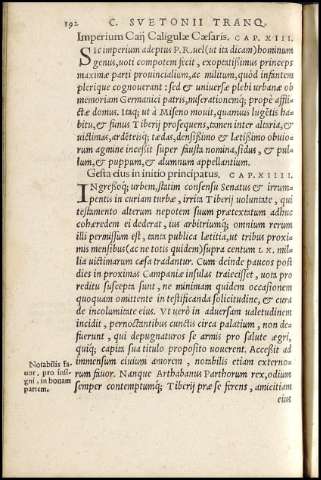 192 C. SVETONII TRANQ.
Imperium Caij Caligulæ Cæsaris. CAP. XIII.
SIc imperium adeptus P.R.uel(ut ita dicam)hominum
genus, uoti compotem fecit, exoptatissimus princeps
maximæ parti prouincialium, ac militum, quòd infantem
plerique cognouerant : sed & uniuersæ plebi urbanæ ob
memoriam Germanici patris, miserationemq́; propè afflictæ
domus. Itaq; ut à Miseno mouit, quamuis lugẽtis habitu,
& funus Tiberij prosequens, tamen inter altaria, &
uictimas, ardẽteisq́; tædas, densissimo & lætissimo obuiorum
agmine incessit super fausta nomina, sidus, & pullum,
& puppum, & alumnum appellantium.
Gesta eius in initio principatus. CAP. XIIII.
INgressoq́; urbem, statim consensu Senatus & irrumpentis
in curiam turbæ, irrita Tiberij uoluntate, qui
testamento alterum nepotem suum prætextatum adhuc
cohæredem ei dederat, ius arbitriumq́; omnium rerum
illi permissum est, tanta publica lætitia, ut tribus proximis
mensibus(ac ne totis quidem)supra centum LX. millia
uictimarum cæsa tradantur. Cum deinde paucos post
dies in proximas Campaniæ insulas traiecisset, uota pro
reditu suscepta sunt, ne minimam quidem occasionem
quoquam omittente in testificanda solicitudine, & cura
de incolumitate eius. VI uerò in aduersam ualetudinem
incidit, pernoctantibus cunctis circa palatium, non defuerunt,
qui depugnaturos se armis pro salute ægri,
quiq́; capita sua titulo proposito uouerent. Accessit ad
immensum ciuium amorem, notabilis etiam externorum
fauor. Nanque Arthabanus Parthorum rex, odium
semper contemptumq́; Tiberij præ se ferens, amicitiam
eius
Notabilis fauor,
pro insigni,
in bonam
partem.